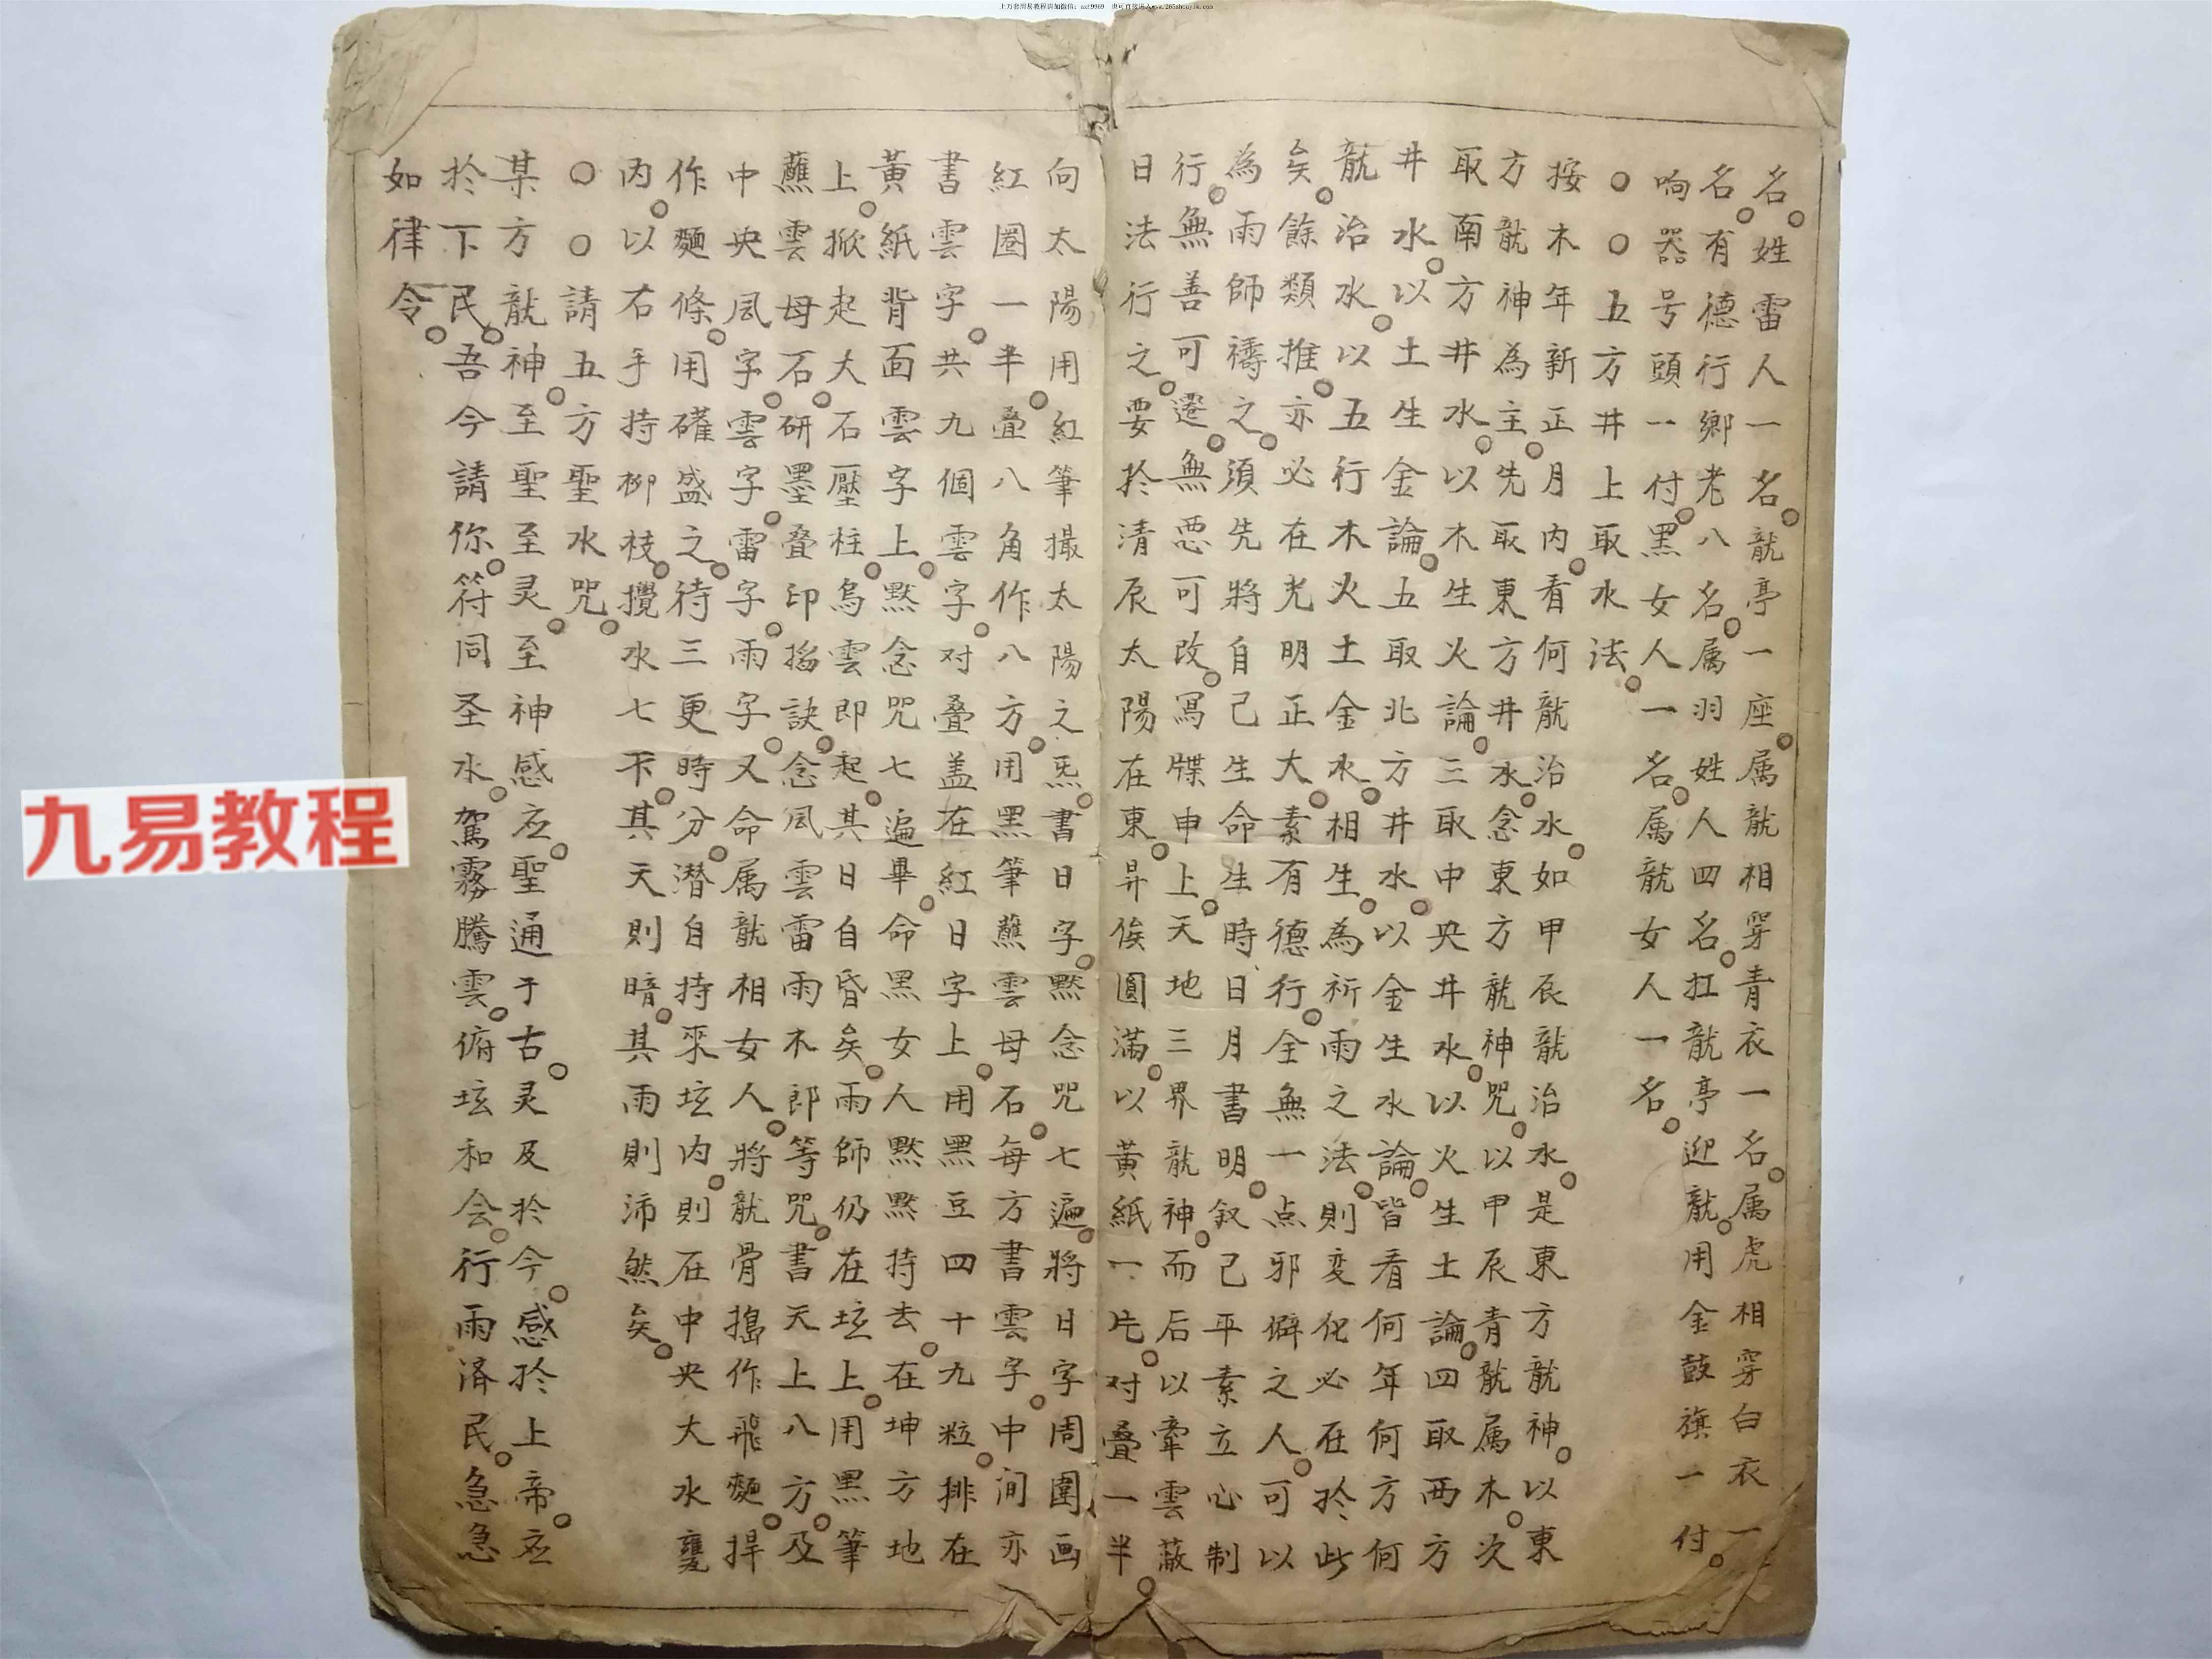 上万套周易教程请加微信：axh9969　也可直接进入www.265zhouyi×.com
名姓雷人一名龍亭一座属龍相穿青衣一名属虎相穿白衣一
名有德行鄉老八名属羽姓人四名扛龍亭迎龍用金鼓旗一付
响器号頭一付黑女人一名属龍女人一名
○○五方井上取水法
按木年新正月内看何龍治水如甲辰龍治水是東方龍神以東
方龍神為主先取東方井水念東方龍神咒以甲辰青龍属木次
取南方井水以木生火論三取中央井水以火生土論四取西方
井水以土生金論五取北方井水以金生水論皆看何年何方何
龍治水以五行木火土金水相生為祈雨之法則变化必在於此
矣餘類推亦必在光明正大素有德行全無一点邪僻之人可以
為雨師禱之須先將自己生命生時日月書明叙己平素立心制
行無善可遷無悪可改寫牒申上天地三界龍神而后以牽雲蔽
日法行之要於清辰太陽在東昇俟圓滿以黃紙一片对叠一半
向太陽用紅筆撮太陽之炁書日字黙念咒七遍將日字周圍画
紅圈一半叠八角作八方用黑筆蘸雲母石每方書雲字中间亦
書雲字共九個雲字对叠盖在紅日字上用黑豆四十九粒排在
黃紙背面雲字上黙念咒七遍畢命黑女人黙黙持去在坤方地
上掀起大石壓柱烏雲即起其日自昏矣雨師仍在坛上用黑筆
蘸雲母石研墨叠印掐訣念風雲雷雨木郎等咒書天上八方及
中央风字雲字雷字雨字又命属龍相女人將龍骨搗作飛麵捍
作麵條用礶盛之待三更時分潜自持來坛内則在中央大水甕
内以右手持柳枝攪水七下其天則暗其雨則沛然矣
○○請五方聖水咒
某方龍神至聖至灵至神感应聖通于古灵及於今感於上帝应
於下民吾今請你符同圣水駕霧騰雲俯坛和会行雨济民急急
如律令
九易教程